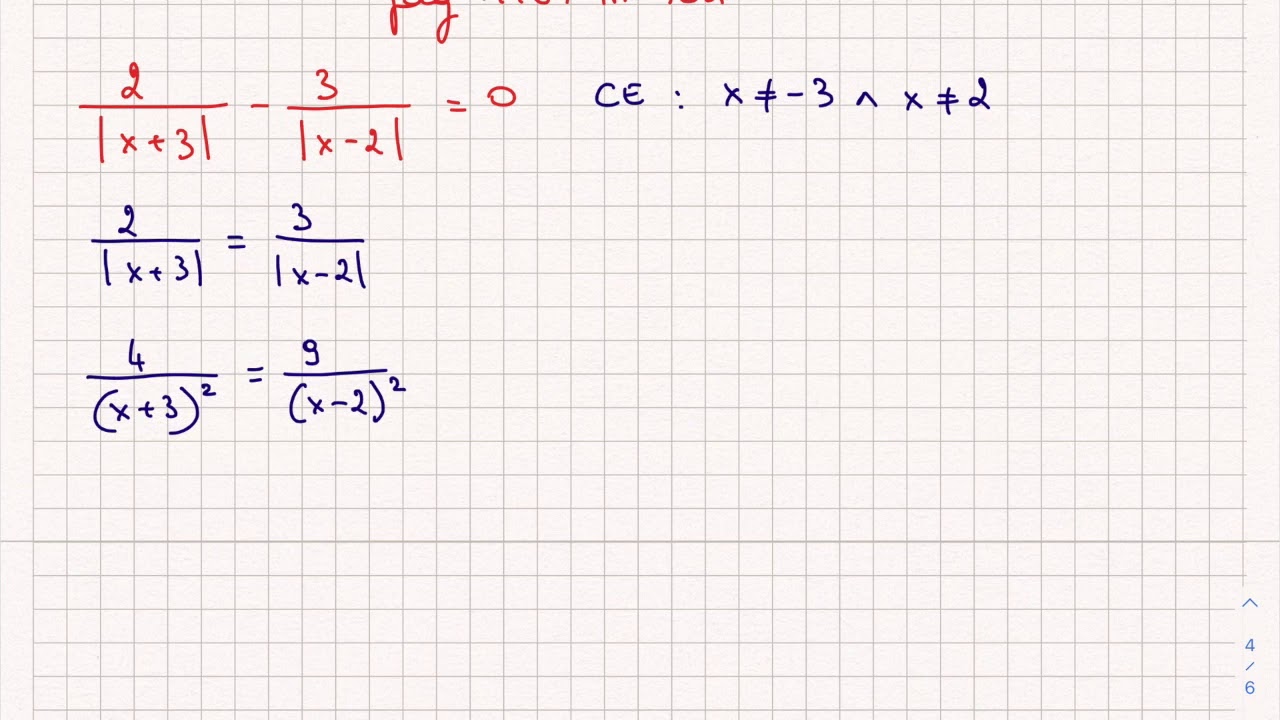 2/|x+3| - 3/|x-2| = 0 CE : x ≠ -3 ∧ x ≠ 2
2/|x+3| = 3/|x-2|
4/(x+3)² = 9/(x-2)²
4/6